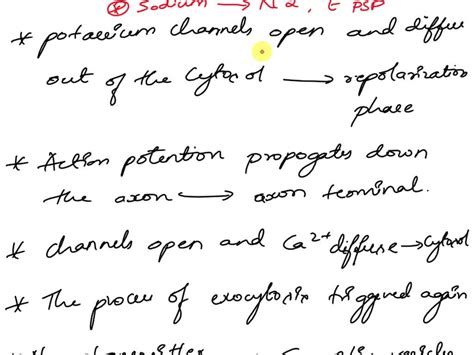 Sodium → N a, E PSP
* potassium channels open and diffuse
out of the cytosol → repolarization
phase
* Action potention propogates down
the axon → axon terminal.
* channels open and Ca2+ diffuse → Cytosol
* The process of exocytosis triggered again